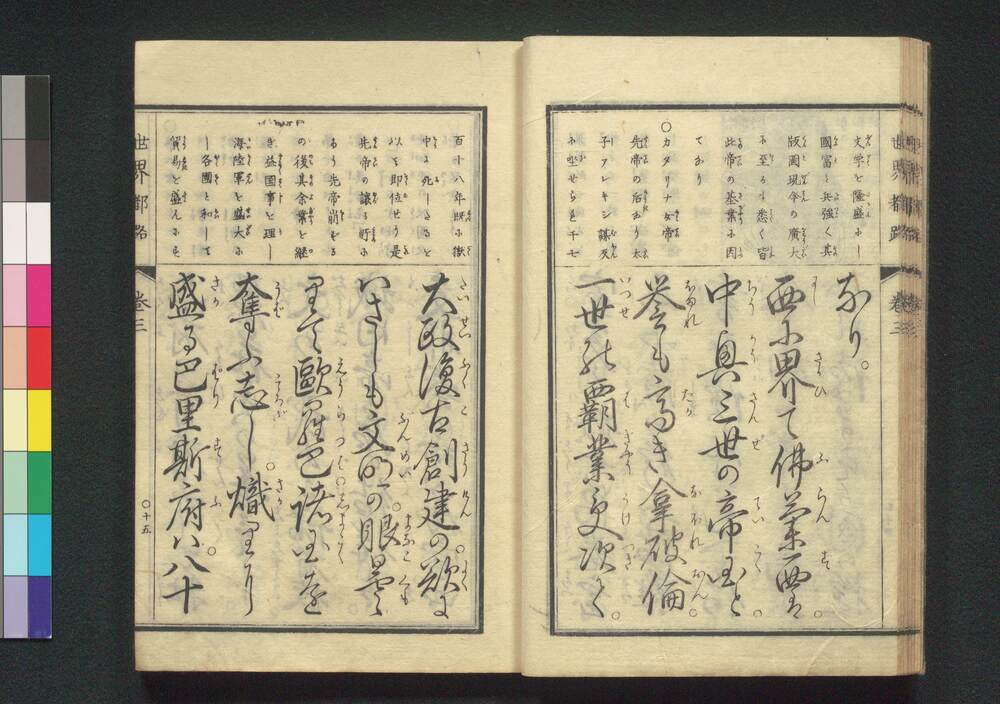 文学を隆盛にし
國富ミ兵強く其
版圖現今の廣大
に至るも悉く皆
此帝の基業に因
ており
○カタリナ女帝
先帝の后なり太
子アレキシ謀反
に坐せられ千七
なり。
西に界て佛蘭西ハ。
中興三世の帝国と。
誉も高き拿破倫。
一世の覇業更次て。
世界都路
巻三
百十八年既に獄
中に死しるを
以て即位せり是
先帝の譲る所に
るり先帝崩も
の後其余業を継
き益国事を理し
海陸軍を盛大に
し各國と和して
貿易を盛んにも
大政復古創建の。欺に
いさしも文明の。眼曇
りて歐羅巴諸国を
奪ふ志し。熾なり
盛る巴里斯府ハ。八十
世界都路
巻三
○十五